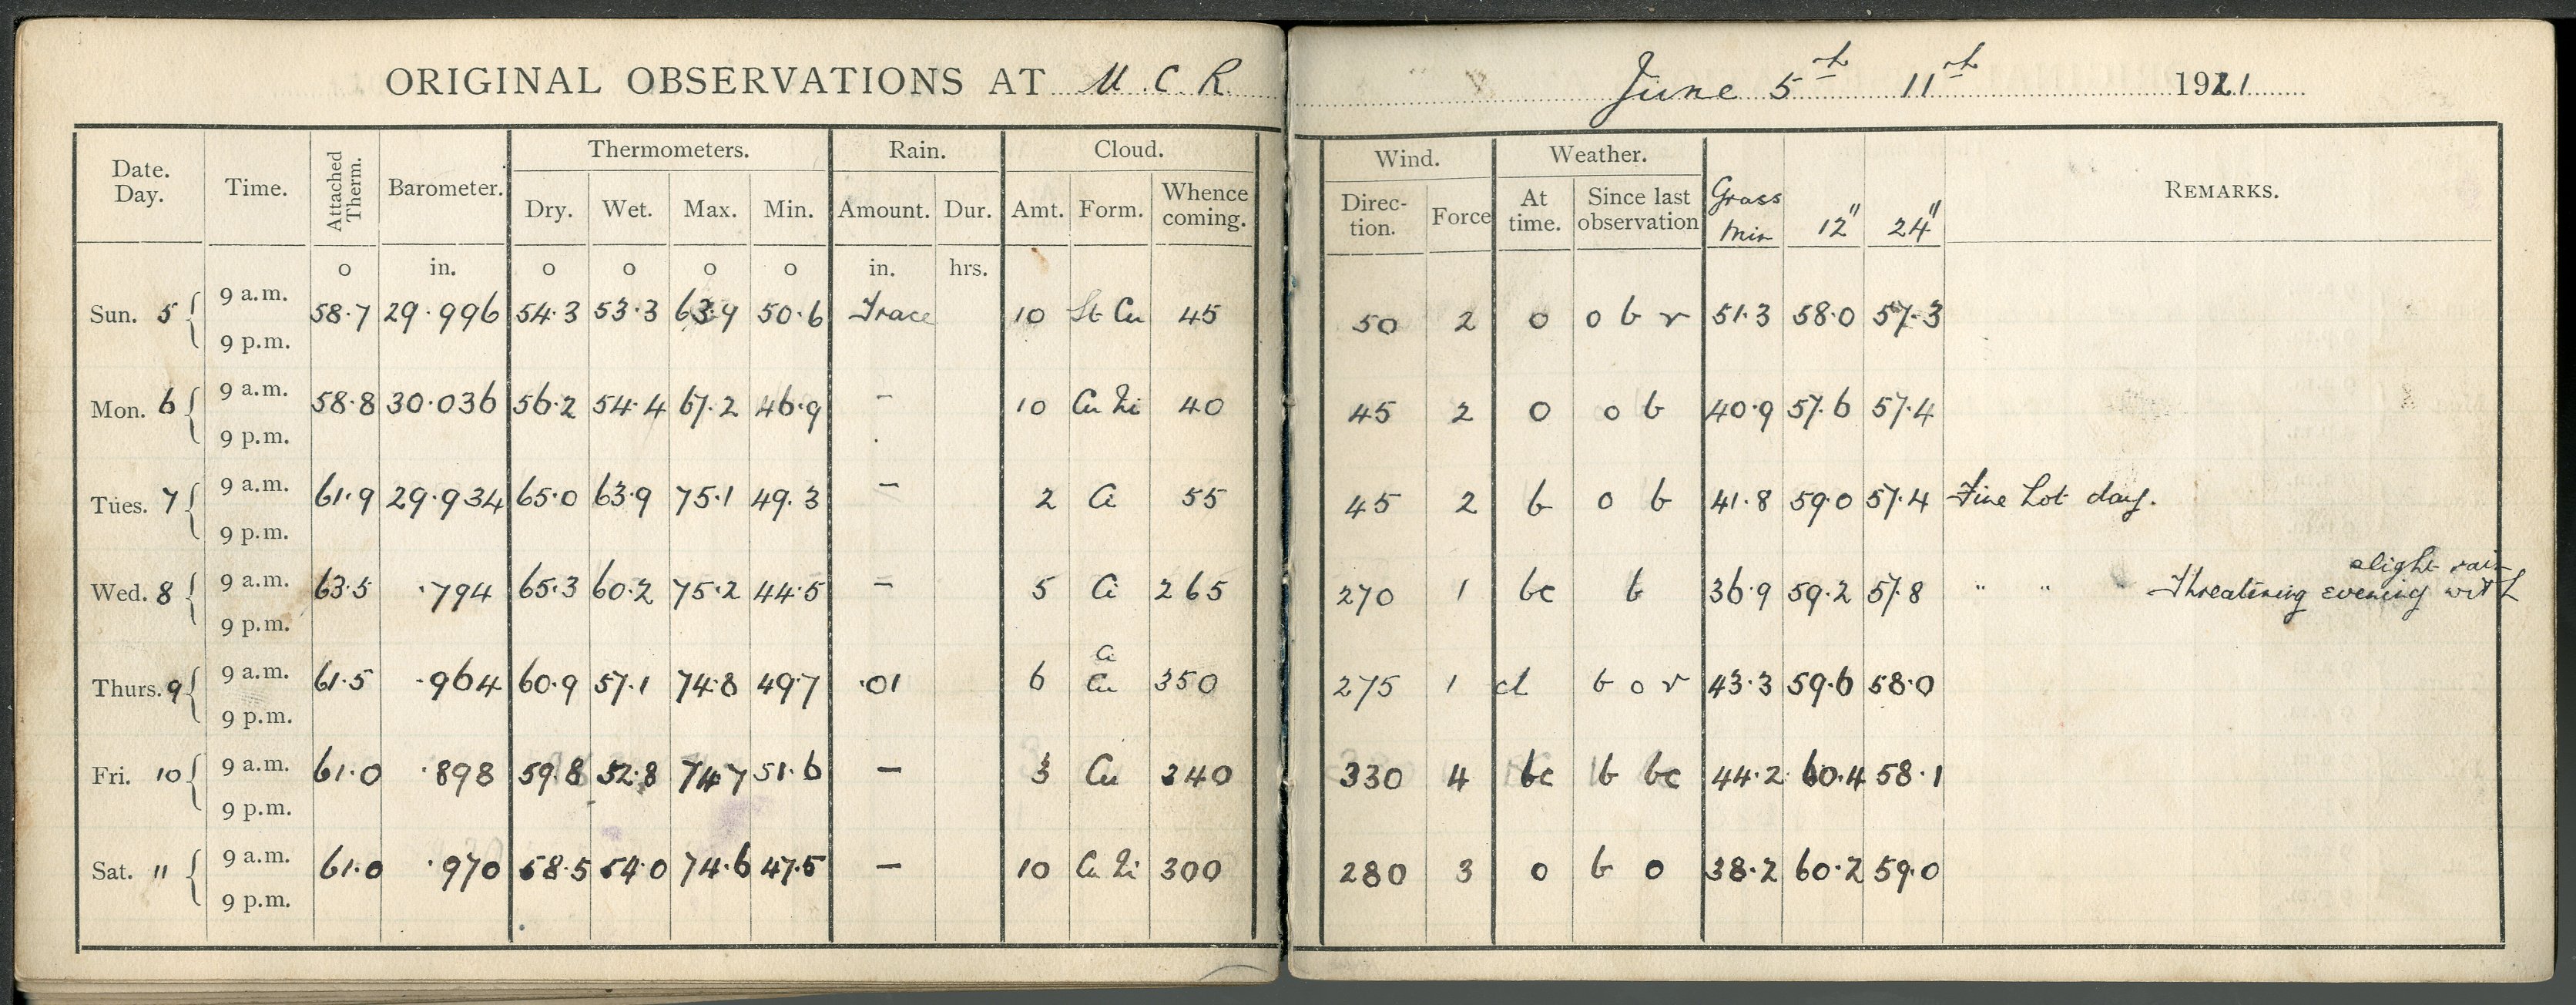 ORIGINAL OBSERVATIONS AT U. C. R. June 5th 11th 1921
Date. Day. Time. Attached Therm. Barometer. Thermometers. Rain. Cloud. Wind. Weather. Grass Min 12" 24" REMARKS.
Dry. Wet. Max. Min. Amount. Dur. Amt. Form. Whence coming. Direc- tion. Force At time. Since last observation
o in. o o o o in. hrs.
Sun. 5 9 a.m. 58.7 29.996 54.3 53.3 63.9 50.6 Trace 10 St Cu 45 50 2 o o b r 51.3 58.0 57.3
9 p.m.
Mon. 6 9 a.m. 58.8 30.036 56.2 54.4 67.2 46.9 - 10 Cu Ni 40 45 2 o o b 40.9 57.6 57.4
9 p.m.
Tues. 7 9 a.m. 61.9 29.934 65.0 63.9 75.1 49.3 - 2 Ci 55 45 2 b o b 41.8 59.0 57.4 Fine hot day.
9 p.m.
Wed. 8 9 a.m. 63.5 .794 65.3 60.2 75.2 44.5 - 5 Ci 265 270 1 bc b 36.9 59.2 57.8 " " " Threatening evening with slight rain
9 p.m.
Thurs. 9 9 a.m. 61.5 .964 60.9 57.1 74.8 49.7 .01 6 Ci Cu 350 275 1 d b o r 43.3 59.6 58.0
9 p.m.
Fri. 10 9 a.m. 61.0 .898 59.8 52.8 74.7 51.6 - 3 Cu 340 330 4 bc b bc 44.2 60.4 58.1
9 p.m.
Sat. 11 9 a.m. 61.0 .970 58.5 54.0 74.6 47.5 - 10 Cu Ni 300 280 3 o b o 38.2 60.2 59.0
9 p.m.